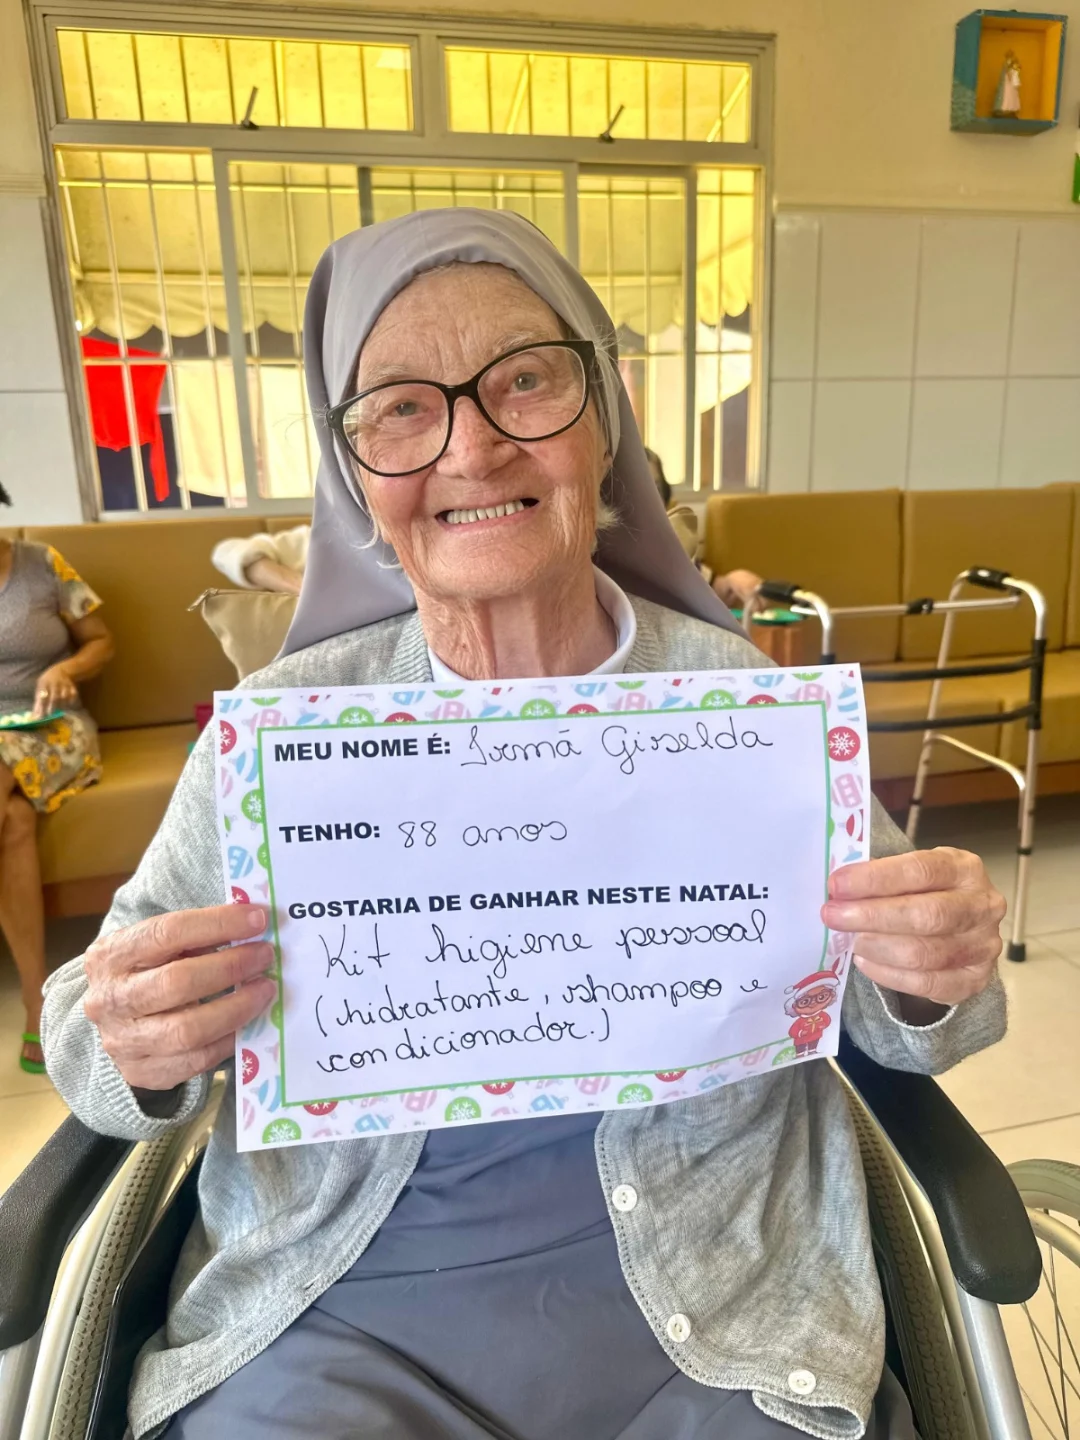 MEU NOME É: Irmã Giselda
TENHO: 88 anos
GOSTARIA DE GANHAR NESTE NATAL:
Kit higiene pessoal
(hidratante, shampoo e
condicionador.)